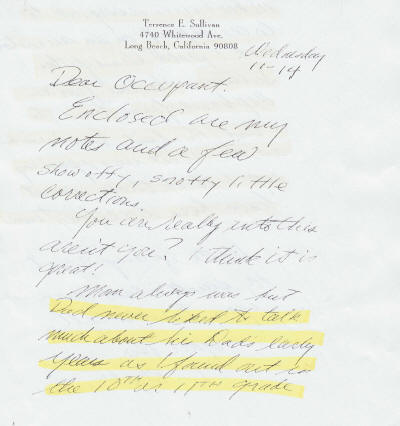 Terrence E. Sullivan
4740 Whitewood Ave.
Long Beach, California 90808
Wednesday
11-14
Dear Occupant.
Enclosed are my
notes and a few
show offy, snotty little
corrections.
You are really into this
aren't you? I think it is
great!
Mom always was but
Dad never liked to talk
much about his Dad's early
years as I found out in
the 10TH or 11TH grade